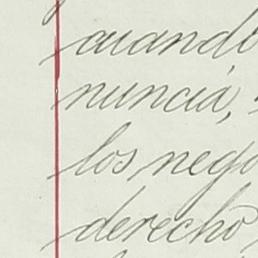 cuando
nuncia,
los nego
derecho